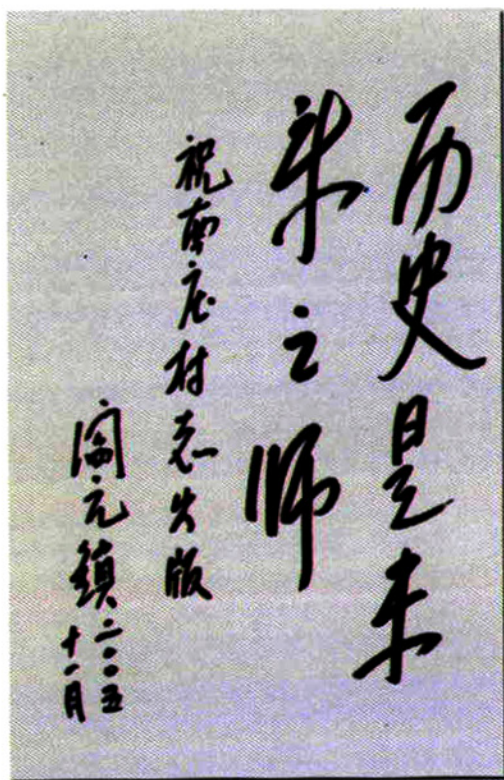 历史是未
来之师
祝南庄村志出版
阎元锁
二〇〇五
十一月